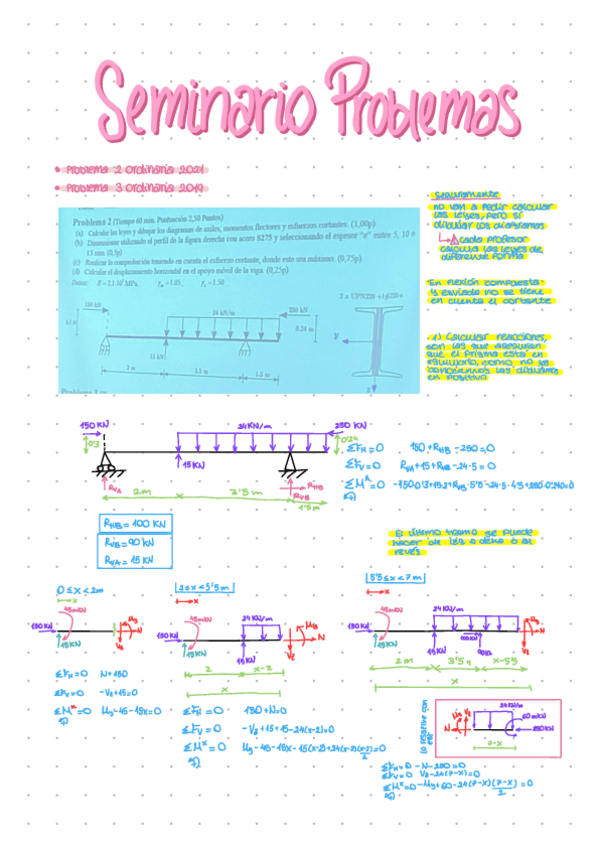 Seminario Problemas
• Problema 2 Ordinaria 2021
• Problema 3 Ordinaria 2019
Problema 2 (Tiempo 60 min. Puntuación 2,50 Puntos)
(a) Calcular las leyes y dibujar los diagramas de axiles, momentos flectores y esfuerzos cortantes. (1,00p)
(b) Dimensionar utilizando el perfil de la figura derecha con acero S275 y seleccionando el espesor "e" entre 5, 10 o
15 mm. (0,5p)
(c) Realizar la comprobación teniendo en cuenta el esfuerzo cortante, donde este sea máximo. (0,75p)
(d) Calcular el desplazamiento horizontal en el apoyo móvil de la viga. (0,25p)
24 kN/m
0.24 m
15 kN
2 m
3.5 m
1.5 m
Seguramente
no van a pedir calcular
las leyes, pero sí
dibujar los diagramas
cada profesor
calcula las leyes de
diferente forma
En flexión compuesta
y esviada no se tiene
en cuenta el cortante
1) Calcular reacciones,
son las que aseguran
que el prisma está en
equilibrio, como no las
conocemos las dibujamos
en positivo
150 KN
24KN/m
250 KN
0'3
0'24
15KN
RVA
RHB
RVB
2m
3'5 m
1'5m
ΣFH=0 150+RHB-250=0
ΣFV=0 RVA+15+RVB-24·5=0
ΣMA=0
RHB= 100 KN
RVB=90 KN
RVA= 15 KN
El último tramo se puede
hacer de izq a dcha o al
revés
0≤x<2m
2≤x<5'5m
5'5≤x<7m
45mKN
150KN
15KN
N
ΣFH=0 N+150
ΣFV=0 -Vz+15=0
ΣMx=0 My-45-15x=0
24KN/m
45mKN
150KN
15KN
15KN
2
x-2
x
ΣFH=0 150+N=0
ΣFV=0 -Vz+15+15-24(x-2)=0
ΣMx=0 My-45-15x-15(x-2)+24(x-2)(x-2)/2=0
24 KN/m
45mKN
150KN
15KN
15KN
2m
3'5
x-5'5
x
24KN/m
60mKN
250KN
7-x
ΣFH=0 -N-250=0
ΣFV=0 Vz-24(7-x)=0
ΣMx=0 -My+60-24(7-x)(7-x)/2=0